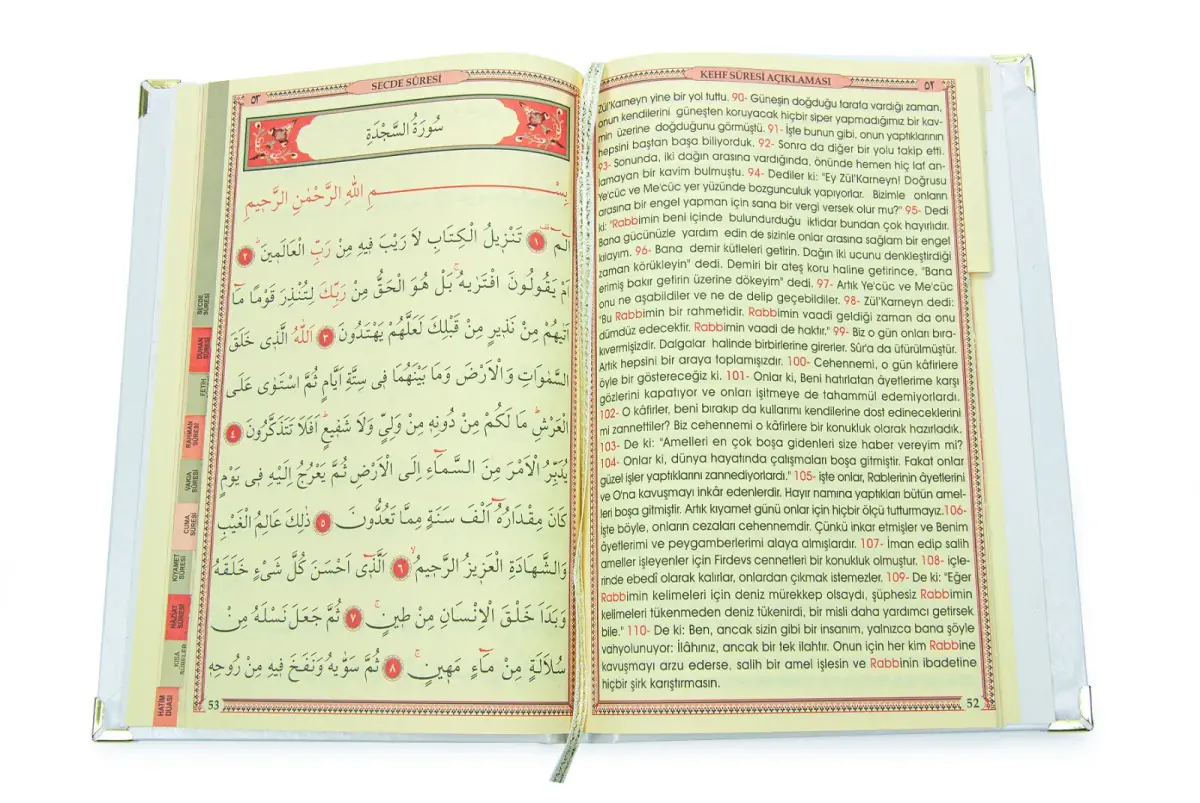 KEHF SÛRESİ AÇIKLAMASI
٥٢
Zül'Karneyn yine bir yol tuttu. 90- Güneşin doğduğu tarafa vardığı zaman,
onun kendilerini güneşten koruyacak hiçbir siper yapmadığımız bir kav-
min üzerine doğduğunu görmüştü. 91- İşte bunun gibi, onun yaptıklarının
hepsini baştan başa biliyorduk. 92- Sonra da diğer bir yolu takip etti.
93- Sonunda, iki dağın arasına vardığında, önünde hemen hiç laf an-
lamayan bir kavim bulmuştu. 94- Dediler ki: "Ey Zül'Karneyn! Doğrusu
Ye'cüc ve Me'cüc yer yüzünde bozgunculuk yapıyorlar. Bizimle onların
arasına bir engel yapman için sana bir vergi versek olur mu?" 95- Dedi
ki: "Rabbimin beni içinde bulundurduğu iktidar bundan çok hayırlıdır.
Bana gücünüzle yardım edin de sizinle onlar arasına sağlam bir engel
kılayım. 96- Bana demir kütleleri getirin. Dağın iki ucunu denkleştirdiği
zaman körükleyin" dedi. Demiri bir ateş koru haline getirince, "Bana
erimiş bakır getirin üzerine dökeyim" dedi. 97- Artık Ye'cüc ve Me'cüc
onu ne aşabildiler ve ne de delip geçebildiler. 98- Zül'Karneyn dedi:
"Bu Rabbimin bir rahmetidir. Rabbimin vaadi geldiği zaman da onu
dümdüz edecektir. Rabbimin vaadi de haktır." 99- Biz o gün onları bıra-
kıvermişizdir. Dalgalar halinde birbirlerine girerler. Sûr'a da üfürülmüştür.
Artık hepsini bir araya toplamışızdır. 100- Cehennemi, o gün kâfirlere
öyle bir göstereceğiz ki. 101- Onlar ki, Beni hatırlatan âyetlerime karşı
gözlerini kapatıyor ve onları işitmeye de tahammül edemiyorlardı.
102- O kâfirler, beni bırakıp da kullarımı kendilerine dost edineceklerini
mi zannettiler? Biz cehennemi o kâfirlere bir konukluk olarak hazırladık.
103- De ki: "Amelleri en çok boşa gidenleri size haber vereyim mi?
104- Onlar ki, dünya hayatında çalışmaları boşa gitmiştir. Fakat onlar
güzel işler yaptıklarını zannediyorlardı." 105- işte onlar, Rablerinin âyetlerini
ve O'na kavuşmayı inkâr edenlerdir. Hayır namına yaptıkları bütün amel-
leri boşa gitmiştir. Artık kıyamet günü onlar için hiçbir ölçü tutturmayız.106-
İşte böyle, onların cezaları cehennemdir. Çünkü inkar etmişler ve Benim
âyetlerimi ve peygamberlerimi alaya almışlardır. 107- İman edip salih
ameller işleyenler için Firdevs cennetleri bir konukluk olmuştur. 108- içle-
rinde ebedî olarak kalırlar, onlardan çıkmak istemezler. 109- De ki: "Eğer
Rabbimin kelimeleri için deniz mürekkep olsaydı, şüphesiz Rabbimin
kelimeleri tükenmeden deniz tükenirdi, bir misli daha yardımcı getirsek
bile." 110- De ki: Ben, ancak sizin gibi bir insanım, yalnızca bana şöyle
vahyolunuyor: İlâhınız, ancak bir tek ilahtır. Onun için her kim Rabbine
kavuşmayı arzu ederse, salih bir amel işlesin ve Rabbinin ibadetine
hiçbir şirk karıştırmasın.
52
SECDE SÛRESİ
٥٣
سُورَةُ السَّجْدَةِ
بِسْمِ اللهِ الرَّحْمٰنِ الرَّحِيمِ
الٓمٓ ١ تَنْزِيلُ الْكِتَابِ لَا رَيْبَ فِيهِ مِنْ رَبِّ الْعَالَمِينَ ٢
اَمْ يَقُولُونَ افْتَرٰيهُ بَلْ هُوَ الْحَقُّ مِنْ رَبِّكَ لِتُنْذِرَ قَوْمًا مَٓا
اَتٰيهُمْ مِنْ نَذِيرٍ مِنْ قَبْلِكَ لَعَلَّهُمْ يَهْتَدُونَ ٣ اَللهُ الَّذِى خَلَقَ
السَّمٰوَاتِ وَالْاَرْضَ وَمَا بَيْنَهُمَا فِى سِتَّةِ اَيَّامٍ ثُمَّ اسْتَوٰى عَلَى
الْعَرْشِ مَا لَكُمْ مِنْ دُونِهِ مِنْ وَلِىٍّ وَلَا شَفِيعٍ اَفَلَا تَتَذَكَّرُونَ ٤
يُدَبِّرُ الْاَمْرَ مِنَ السَّمَٓاءِ اِلَى الْاَرْضِ ثُمَّ يَعْرُجُ اِلَيْهِ فِى يَوْمٍ
كَانَ مِقْدَارُهُٓ اَلْفَ سَنَةٍ مِمَّا تَعُدُّونَ ٥ ذٰلِكَ عَالِمُ الْغَيْبِ
وَالشَّهَادَةِ الْعَزِيزُ الرَّحِيمُ ٦ اَلَّذِٓى اَحْسَنَ كُلَّ شَىْءٍ خَلَقَهُ
وَبَدَاَ خَلْقَ الْاِنْسَانِ مِنْ طِينٍ ٧ ثُمَّ جَعَلَ نَسْلَهُ مِنْ
سُلَالَةٍ مِنْ مَٓاءٍ مَهِينٍ ٨ ثُمَّ سَوّٰيهُ وَنَفَخَ فِيهِ مِنْ رُوحِهِ
53
SECDE
SÛRESİ
DUHAN
SÛRESİ
FETİH
RAHMAN
SÛRESİ
VAKIA
SÛRESİ
CUMA
SÛRESİ
KIYAMET
SÛRESİ
NAZİAT
SÛRESİ
KISA
SÛRELER
HATİM
DUASI